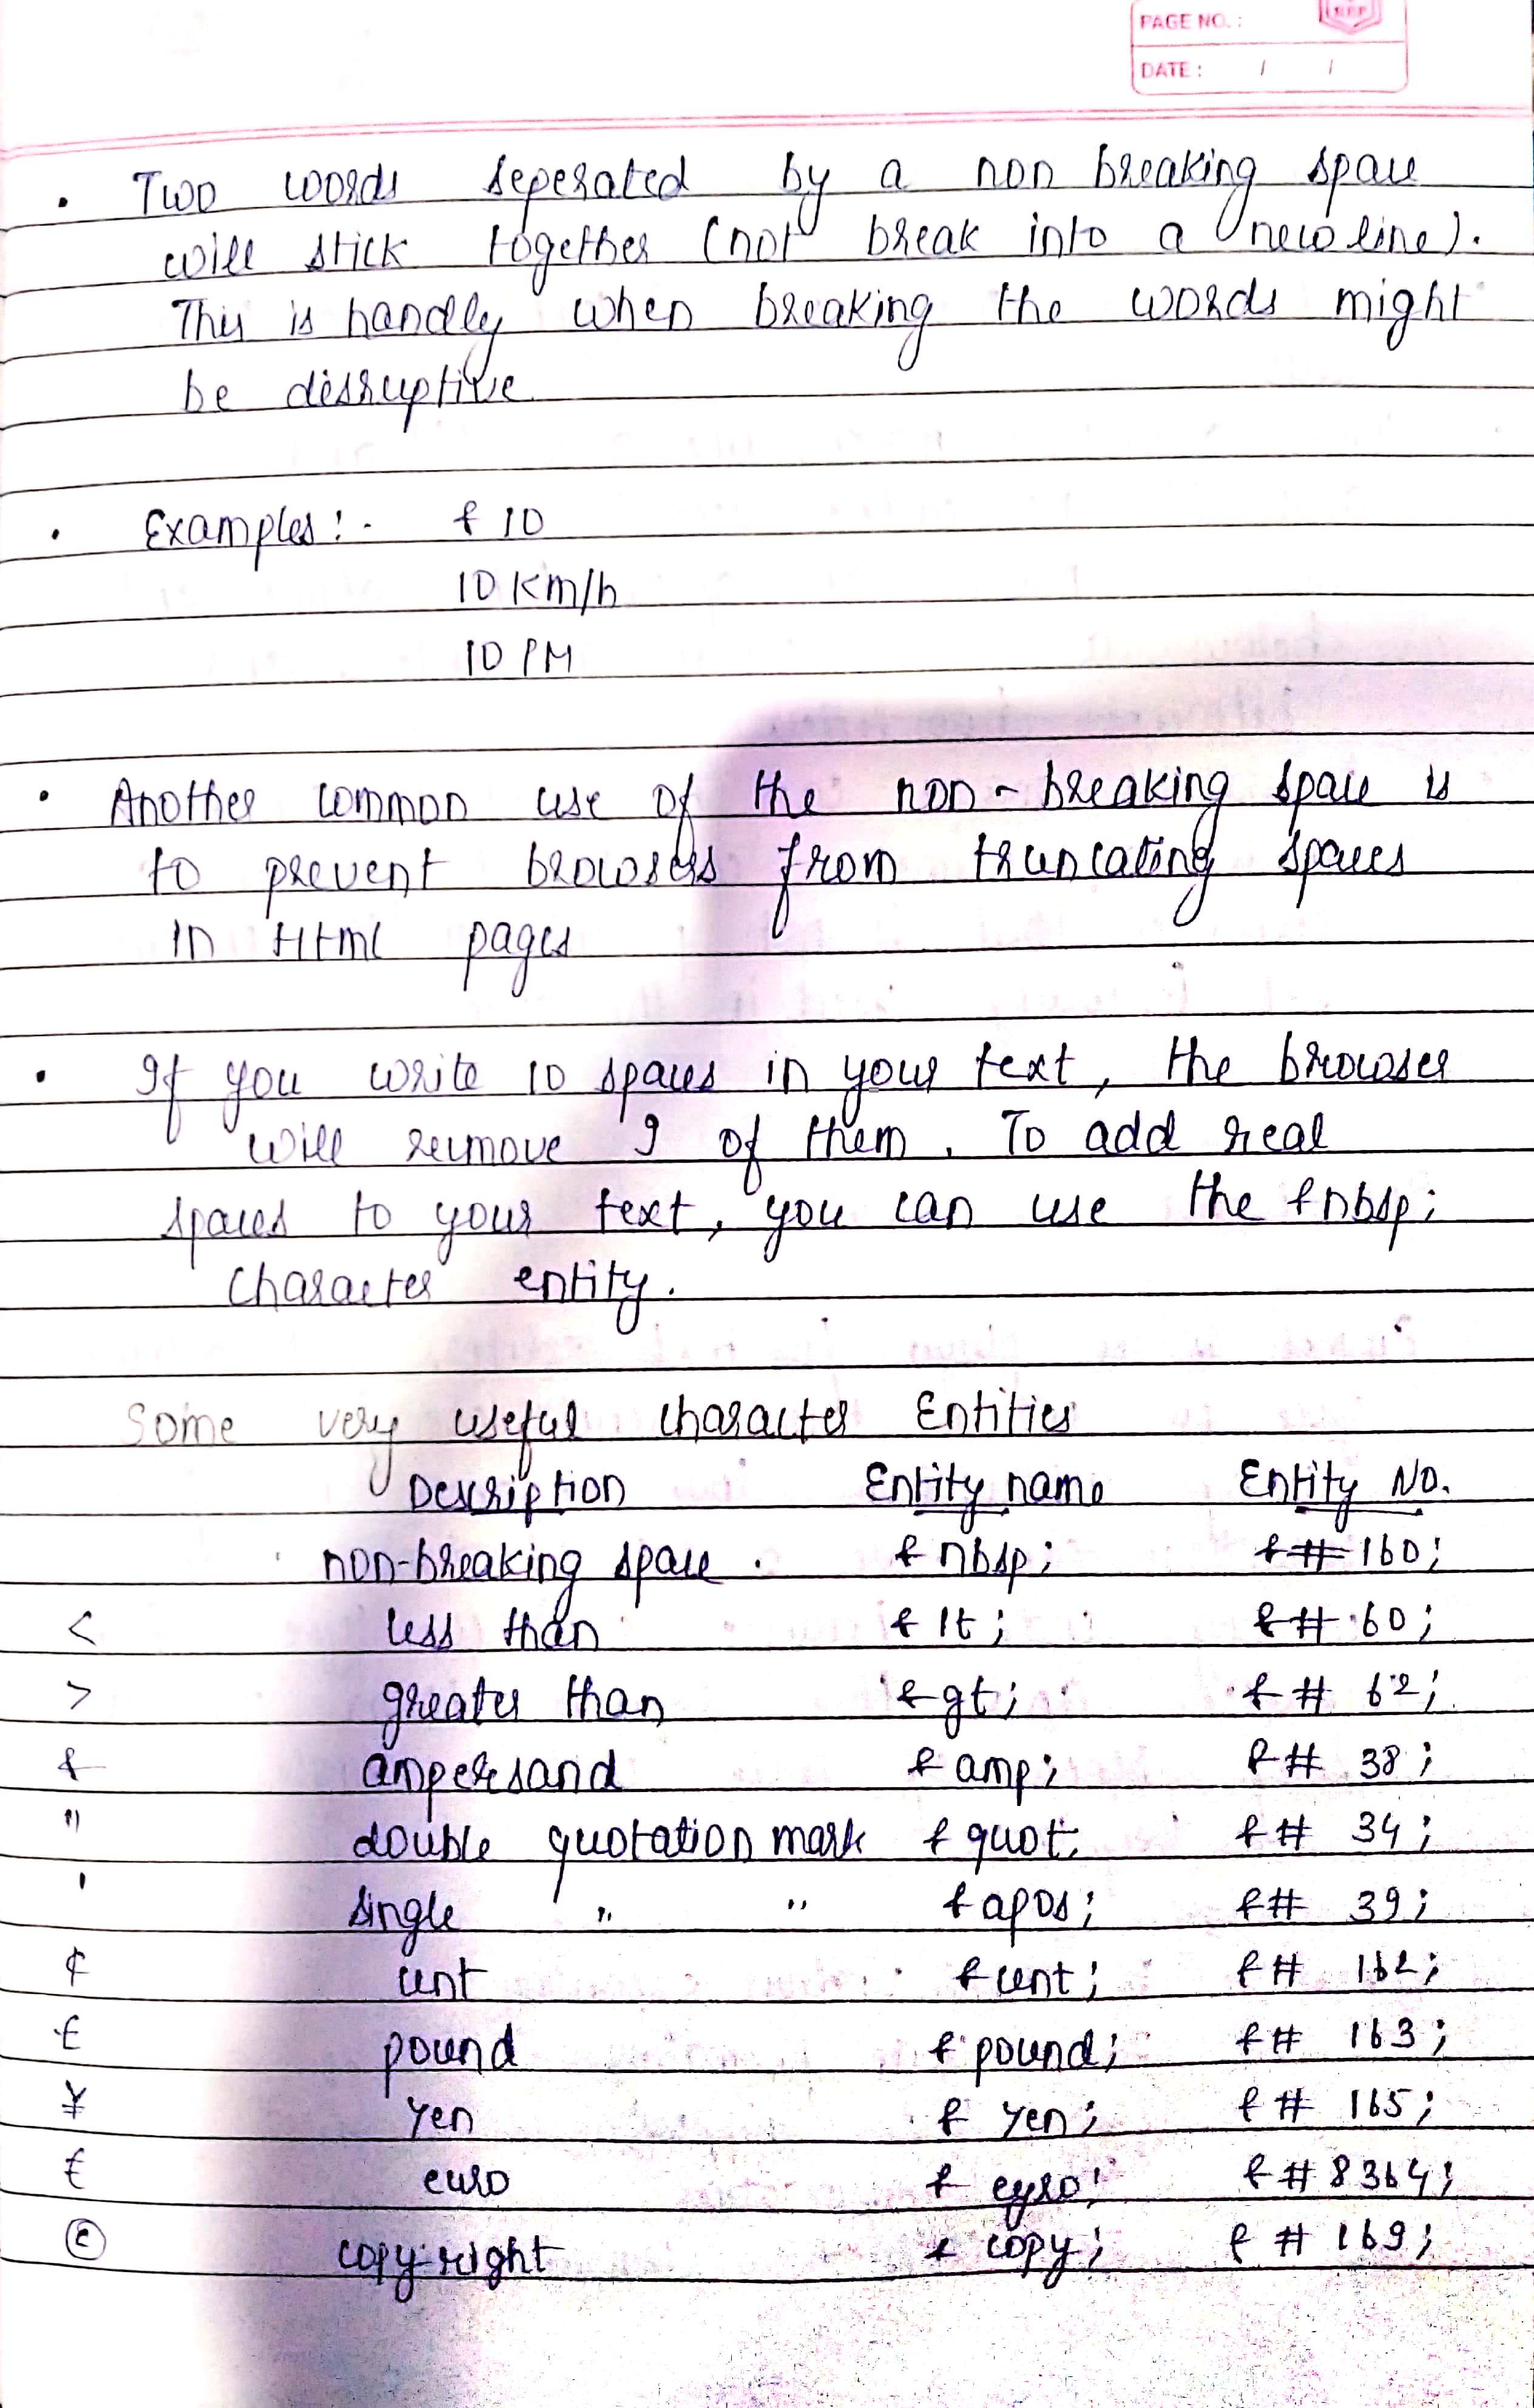 PAGE NO. :
DATE : / /
• Two words seperated by a non breaking space
will stick together (not break into a new line).
This is handly when breaking the words might
be disruptive
• Examples :- & 10
10 km/h
10 PM
• Another common use of the non-breaking space is
to prevent browsers from truncating spaces
in Html pages
• If you write 10 spaces in your text, the browser
will remove 9 of them. To add real
spaces to your text, you can use the &nbsp;
character entity.
Some very useful character Entities
Description Entity name Entity No.
non-breaking space . &nbsp; &#160;
< less than &lt; &#60;
> greater than &gt; &# 62;
& ampersand &amp; &# 38;
" double quotation mark &quot; &# 34;
' single " " &apos; &# 39;
¢ cent &cent; &# 162;
£ pound &pound; &# 163;
¥ yen & yen; &# 165;
€ euro & eyro; &#8364;
© copy-right & copy; & # 169;